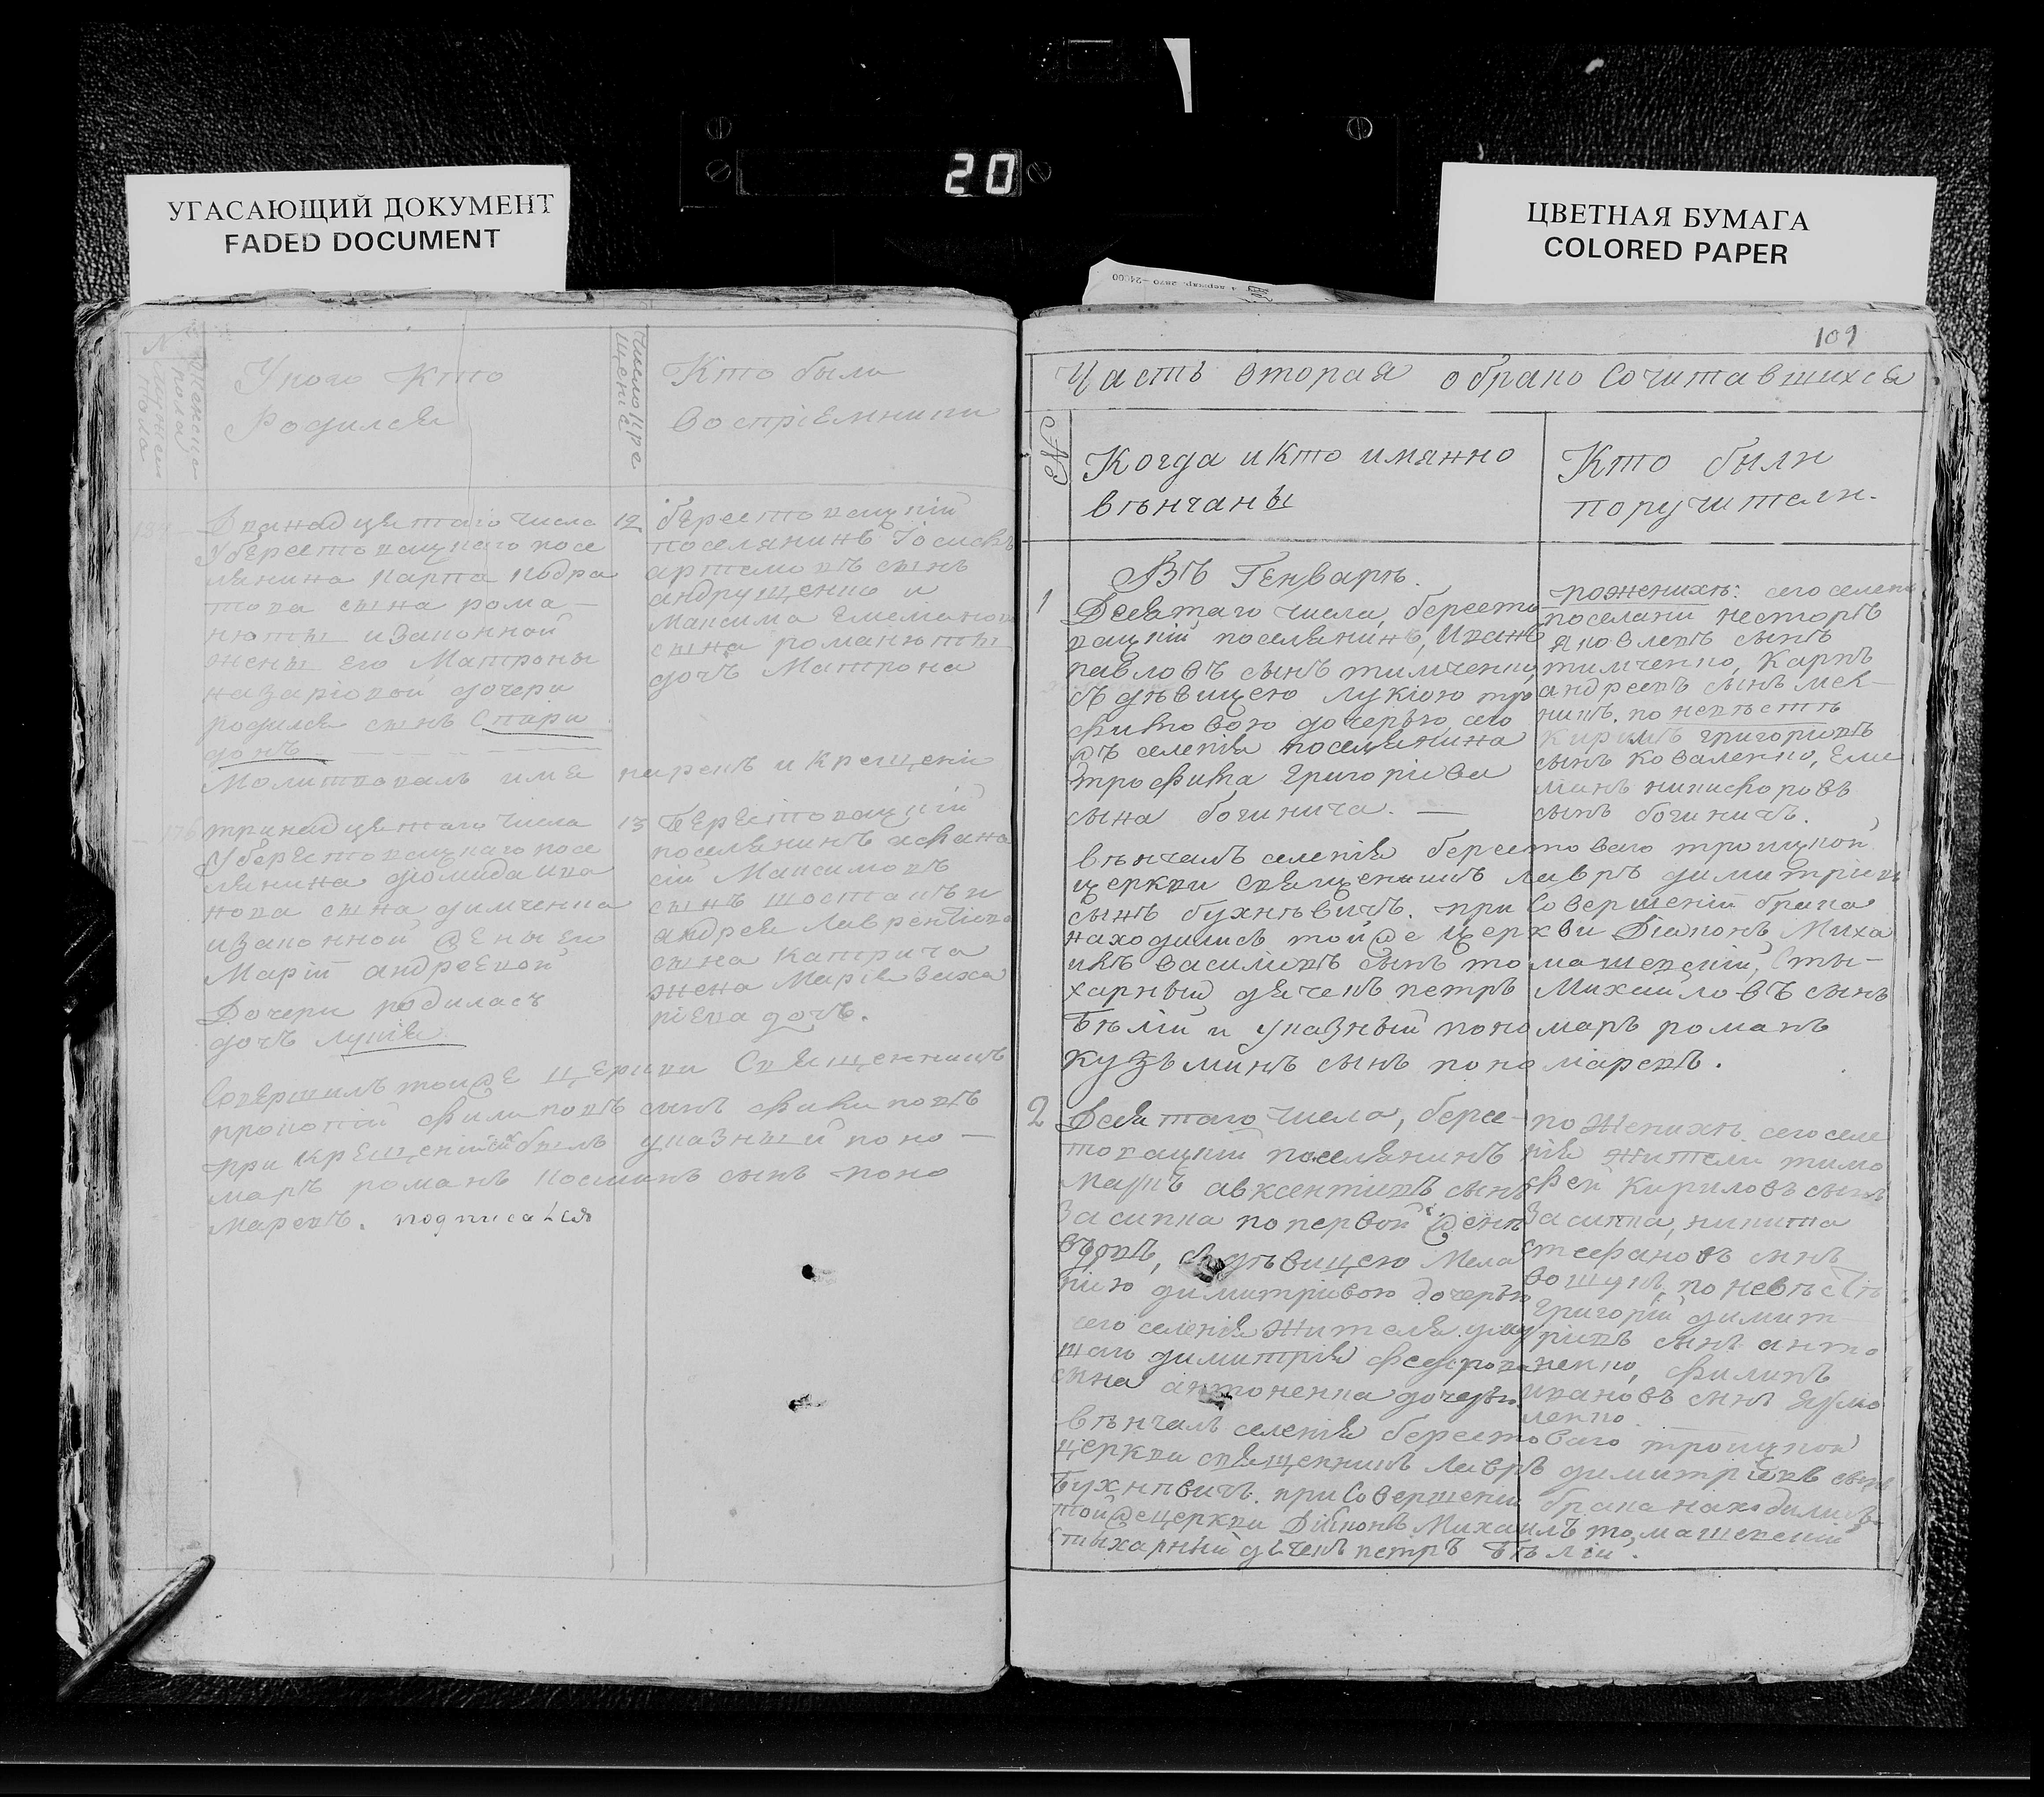 20
УГАСАЮЩИЙ ДОКУМЕНТ
FADED DOCUMENT
ЦВЕТНАЯ БУМАГА
COLORED PAPER
№
Мужеска пола
Женска пола
У кого кто
Родился
Число Кре
щенія
Кто были
Воспріемники
12
Дванадцятаго числа
У берестовацкаго посе
лянина Карпа Кодра
това сына рома—
нюты изаконной
жены его Матроны
назаріовой дочери
родился сынъ Спири
донъ
берестовацкій
поселянинъ Іосифъ
артемовъ сынъ
андрущенко и
Максима Емелянова
сына романюты
дочъ Матрона
Молитвовалъ имя нарекъ и Крещеніе
13
тринадцятаго числа
У берестовацкаго посе
лянина
нова сына димченка
изаконной жены ею
Маріи андреевой
Дочери родилась
дочъ лукія
Берестовацкій
поселянинъ афана
сій Максимовъ
сынъ шостакъ и
андрея Лаврентіева
сына Каприча
жена Марія Заха
ріева дочъ.
Совершилъ тойже церкви Священникъ
прокопій филиповъ сынъ филиповъ
при крещеніи былъ указный поно—
маръ романъ Косминъ сынъ поно
маревъ. подписался
109
Часть вторая обрако Сочитавшихся
№
Когда и Кто имянно
вѣнчаны
Кто были
поручители.
Въ Генваръ.
1
Десятаго числа, бересто
вацкій поселянинъ, Иванъ
павловъ сынъ тимченко,
съ дѣвицею лукіею тро
фимовою дочерью сего
жъ селенія поселянина
трофима Григоріева
сына богинича. —
поженихѣ: сего селенія
поселяни несторъ
яковлевъ сынъ
тимченко, Карпъ
андреевъ сынъ мел—
никъ. по невѣстѣ
Кирилъ григоріевъ
сынъ Коваленко, Еме
лянъ никифоровъ
сынъ богиничъ.
вѣнчалъ селенія берестоваго троицкой
церкви священникъ лавръ димитріевъ
сынъ бухнѣвичъ. при Совершеніи брака
находились тойже церкви Діяконъ Миха
илъ василіевъ сынъ томашевскій, Сты—
харный дяченъ петръ Михаиловъ сынъ
бѣлій и указный пономаръ романъ
кузьминъ сынъ пономаревъ.
2
Десятаго числа, бере—
стовацкій поселянинъ
Маркъ авксентиевъ сынъ
Засипка по первой женѣ
вдовъ, сдѣвицею Мела
ніею димитріевою дочерью
сего селенія жителя умер
шаго димитрія федорова
сына антоненка дочерью
по Женихѣ. сего селе
нія жители тимо
фей Кириловъ сынъ
Засипка, никита
стефановъ сынъ
по невѣстѣ
Григорій димит
ріевъ сынъ анто
ненко, филипъ
ивановъ сынъ ярмо
ленко.
вѣнчалъ селенія берестоваго троицкой
церкви священникъ Лавръ димитріевъ сынъ
бухнѣвичъ. при Совершеніи брака находились
тойже церкви Діяконъ Михаилъ томашевскій
Стыхарный дяченъ петръ бѣлій.